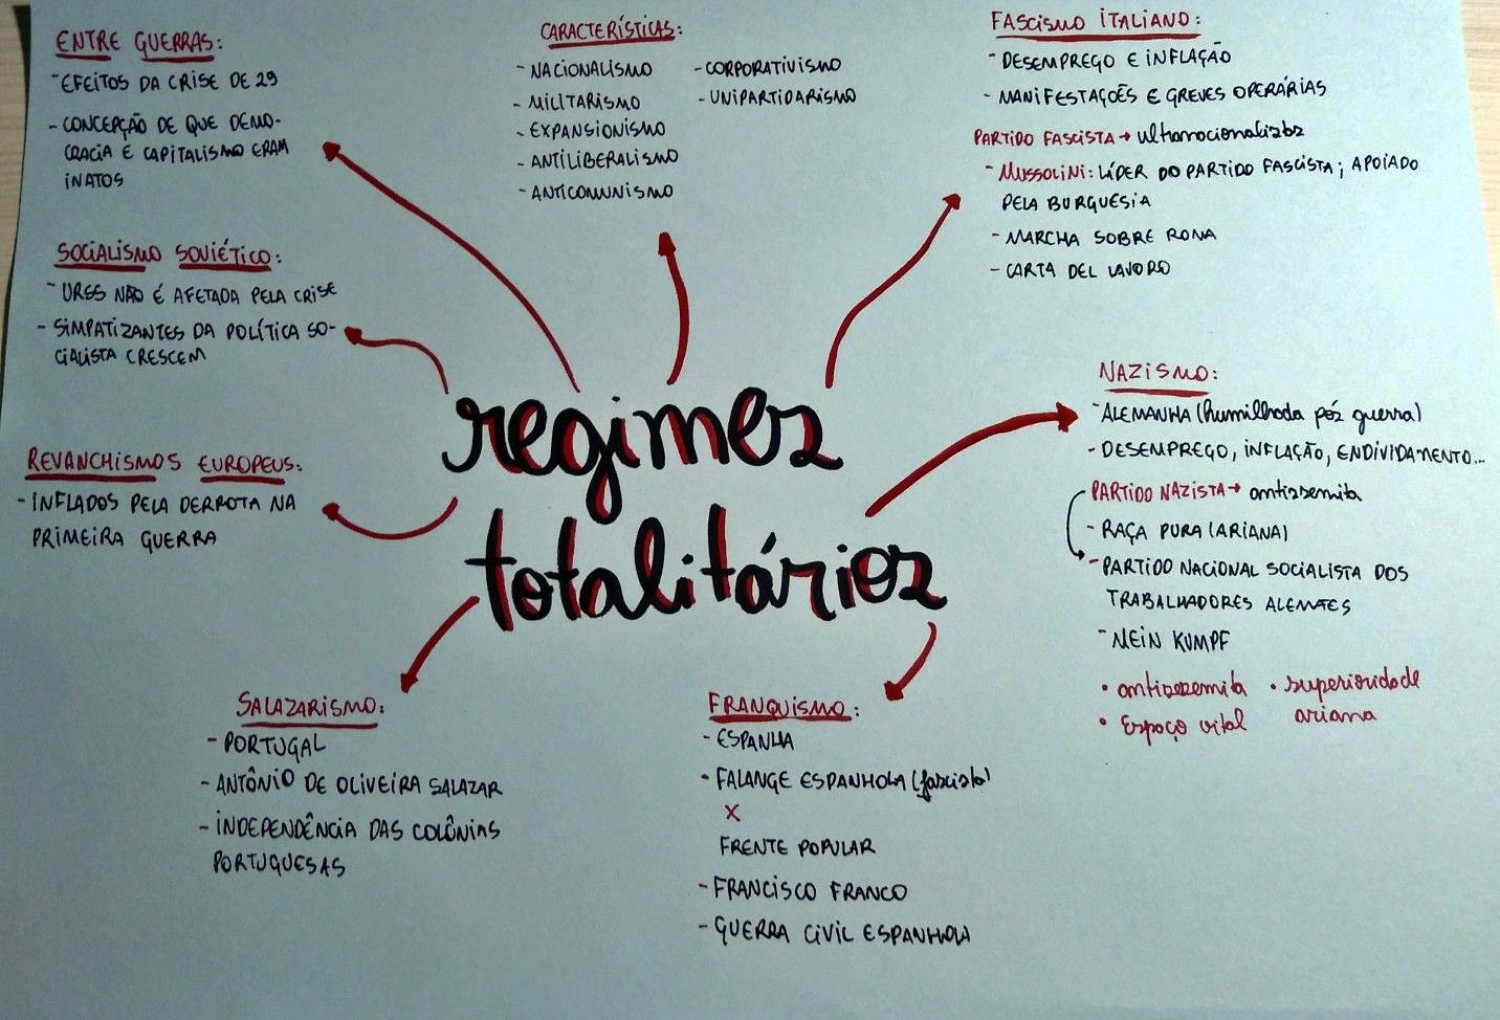 ENTRE GUERRAS:
- EFEITOS DA CRISE DE 29
- CONCEPÇÃO DE QUE DEMO-
CRACIA E CAPITALISMO ERAM
INATOS
SOCIALISMO SOVIÉTICO:
- URSS NÃO É AFETADA PELA CRISE
- SIMPATIZANTES DA POLÍTICA SO-
CIALISTA CRESCEM
REVANCHISMOS EUROPEUS:
- INFLADOS PELA DERROTA NA
PRIMEIRA GUERRA
CARACTERÍSTICAS:
- NACIONALISMO
- MILITARISMO
- EXPANSIONISMO
- ANTILIBERALISMO
- ANTICOMUNISMO
- CORPORATIVISMO
- UNIPARTIDARISMO
FASCISMO ITALIANO:
- DESEMPREGO E INFLAÇÃO
- MANIFESTAÇÕES E GREVES OPERÁRIAS
PARTIDO FASCISTA → ultranacionalista
- MUSSOLINI: LÍDER DO PARTIDO FASCISTA; APOIADO
PELA BURGUESIA
- MARCHA SOBRE ROMA
- CARTA DEL LAVORO
regimes
totalitários
NAZISMO:
- ALEMANHA (humilhada pós guerra)
- DESEMPREGO, INFLAÇÃO, ENDIVIDAMENTO...
PARTIDO NAZISTA → antissemita
- RAÇA PURA (ARIANA)
- PARTIDO NACIONAL SOCIALISTA DOS
TRABALHADORES ALEMÃES
- MEIN KUMPF
• antissemita • superioridade
• Espaço vital ariana
SALAZARISMO:
- PORTUGAL
- ANTÔNIO DE OLIVEIRA SALAZAR
- INDEPENDÊNCIA DAS COLÔNIAS
PORTUGUESAS
FRANQUISMO:
- ESPANHA
- FALANGE ESPANHOLA (fascista)
X
FRENTE POPULAR
- FRANCISCO FRANCO
- GUERRA CIVIL ESPANHOLA